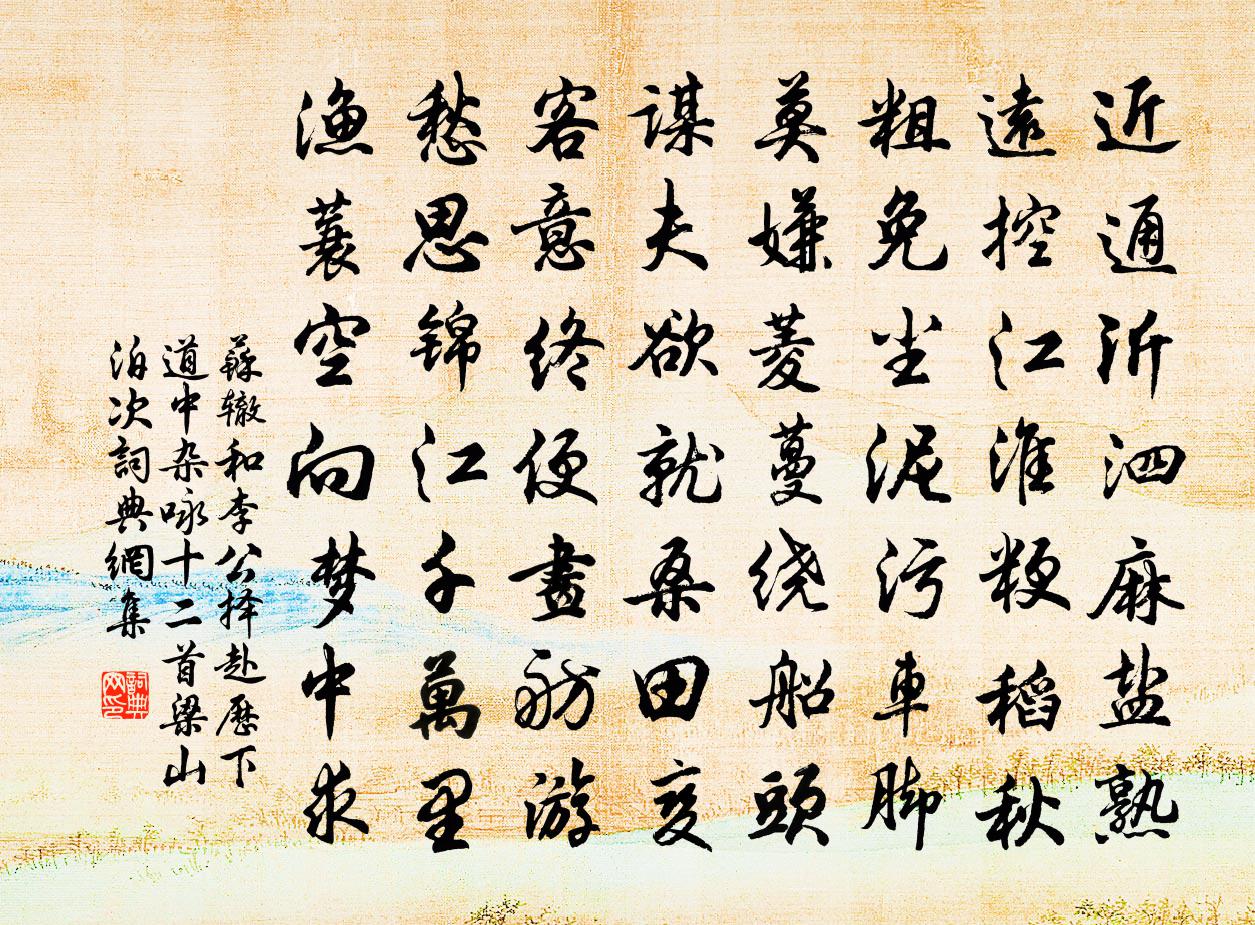 近通沂泗麻盐熟
遠控江淮粳稻秋
粗免尘泥污車脚
莫嫌菱蔓绕船頭
謀夫欲就桑田变
客意终便畫舫游
愁思锦江千萬里
渔蓑空向梦中求
蘇辙和李公择赴歷下
道中杂咏十二首梁山
泊次詞典網集
詞典
网印